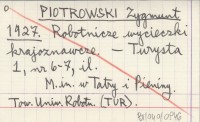 PIOTROWSKI Zygmunt
1927. Robotnicze wycieczki
krajoznawcze. — Turysta
1, nr 6-7, il.
M. in. w Tatry i Pieniny.
Tow. Uniw. Robotn. (TUR).